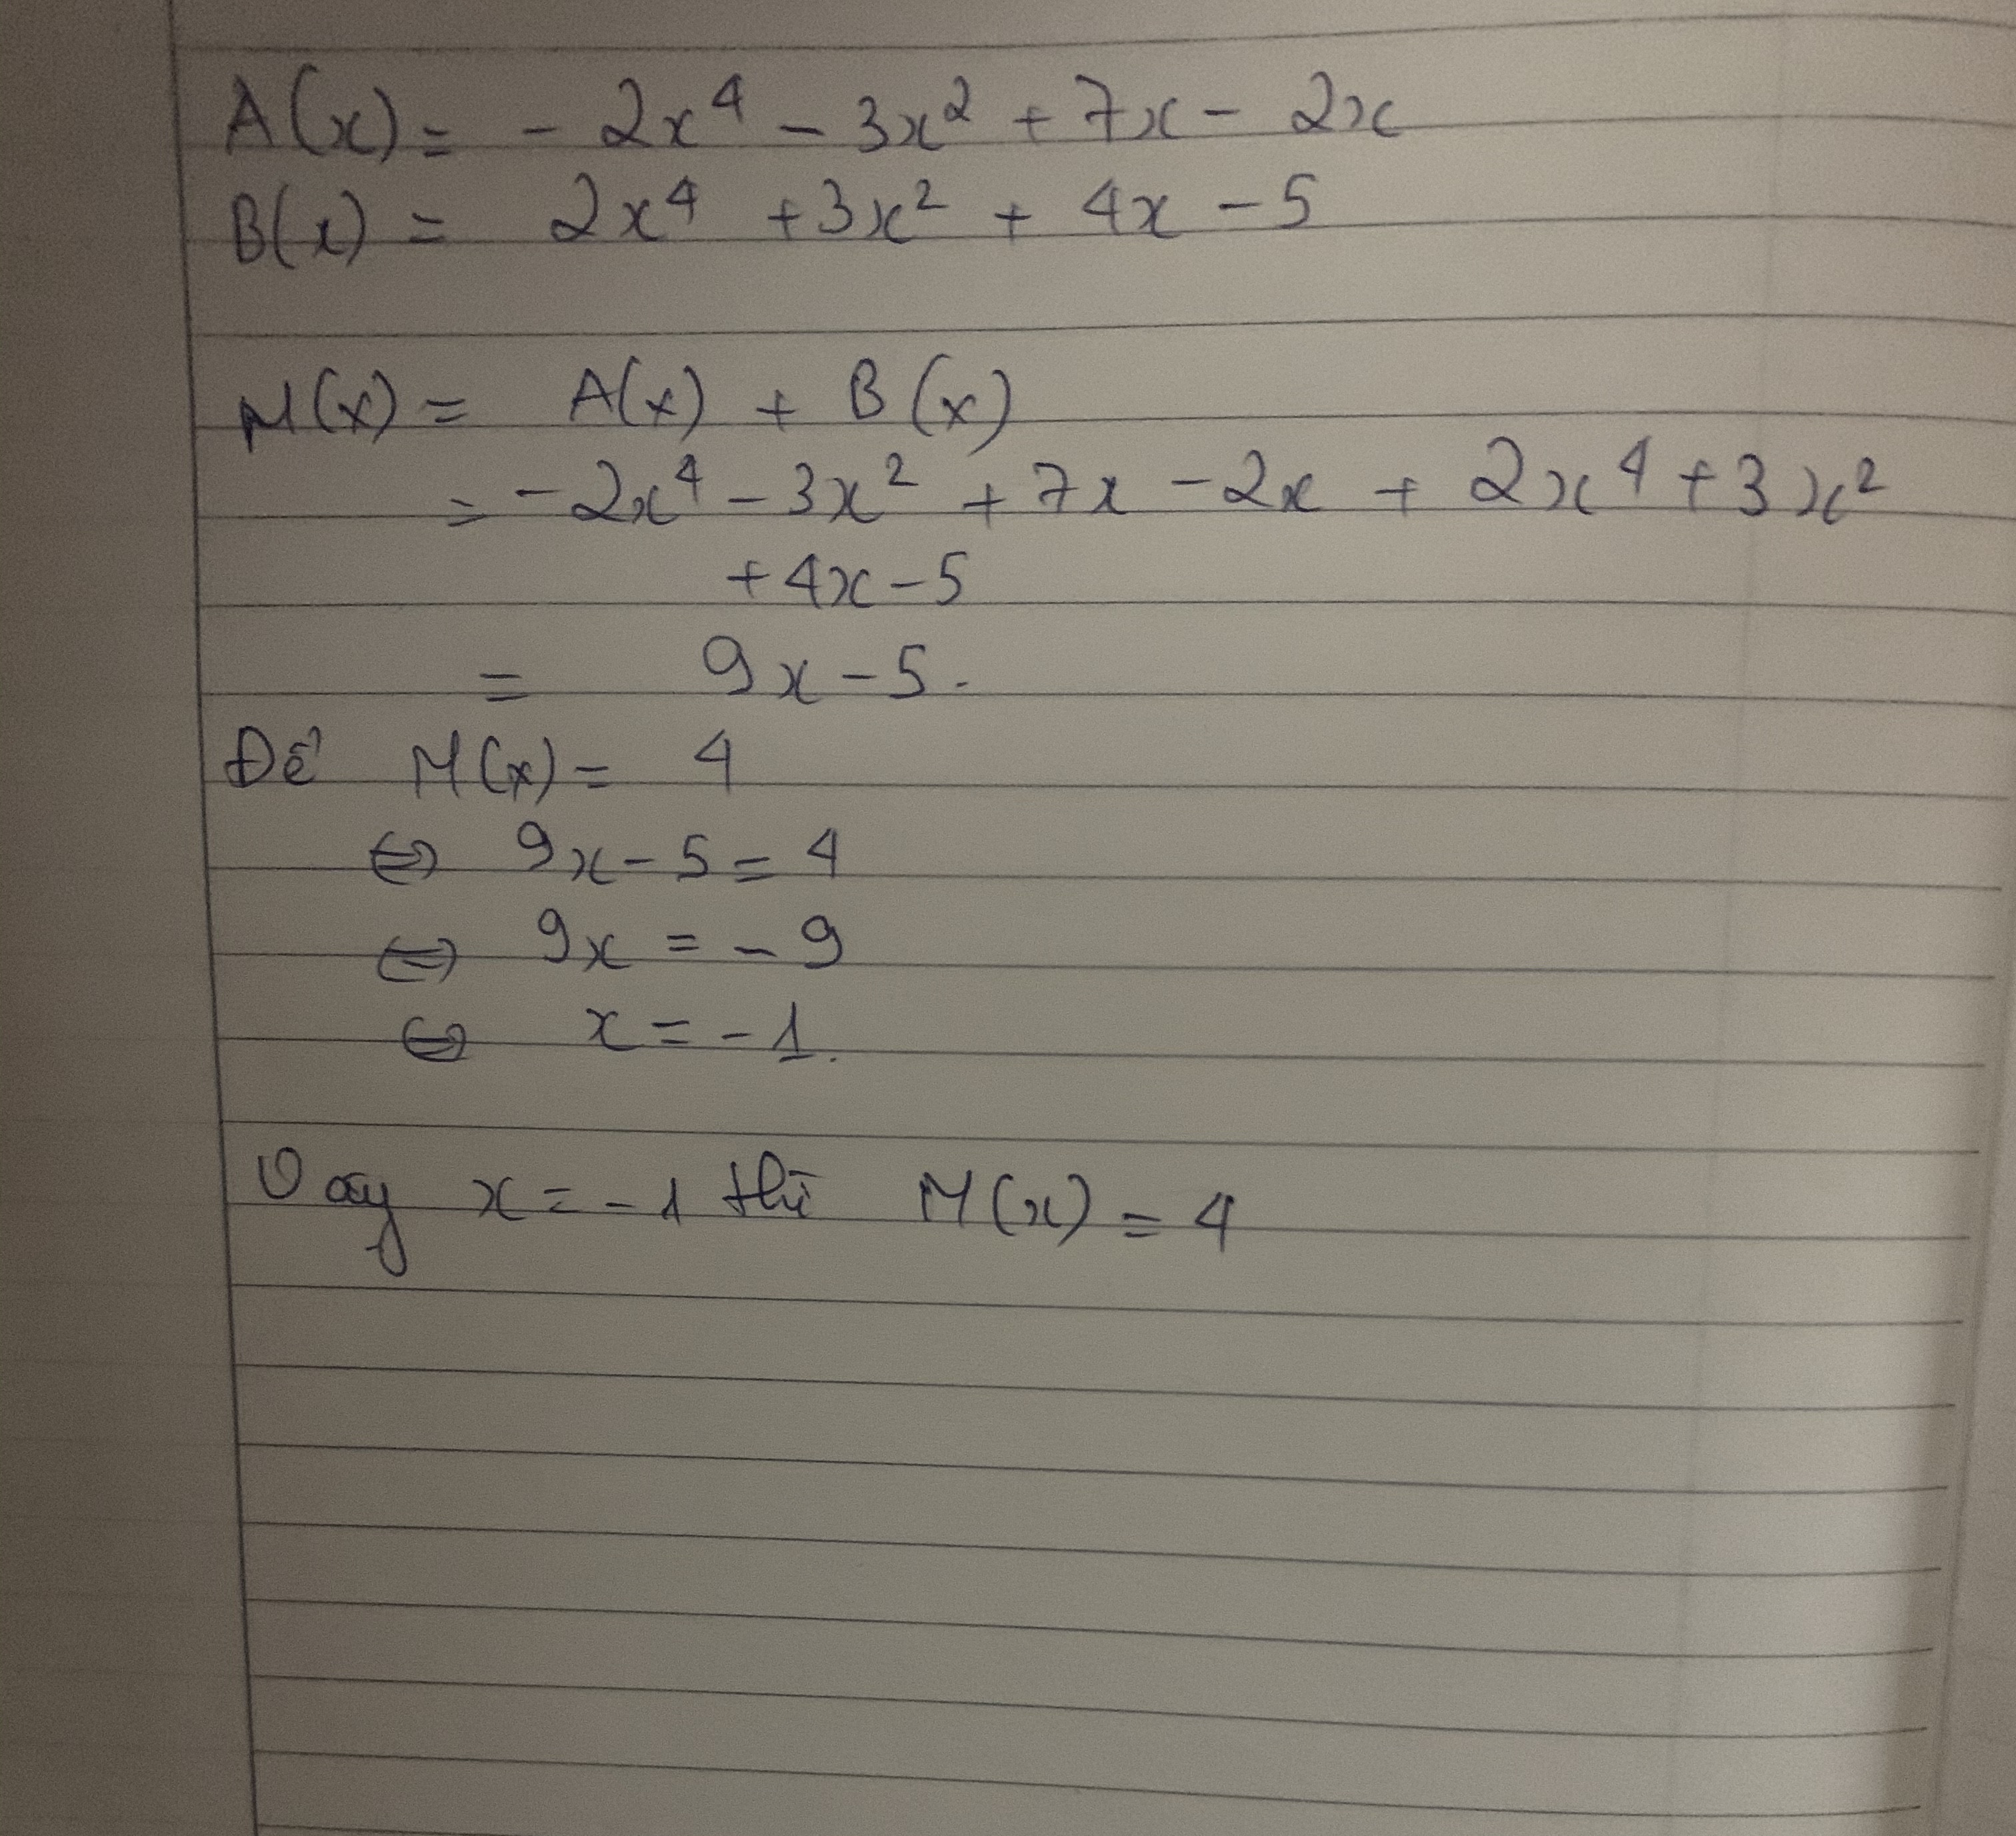 A(x) = - 2x⁴ - 3x² + 7x - 2x
B(x) = 2x⁴ + 3x² + 4x - 5
M(x) = A(x) + B(x)
= -2x⁴ - 3x² + 7x - 2x + 2x⁴ + 3x²
+ 4x - 5
= 9x - 5.
Để M(x) = 4
⇔ 9x - 5 = 4
⇔ 9x = - 9
⇔ x = - 1.
Vậy x = - 1 thì M(x) = 4